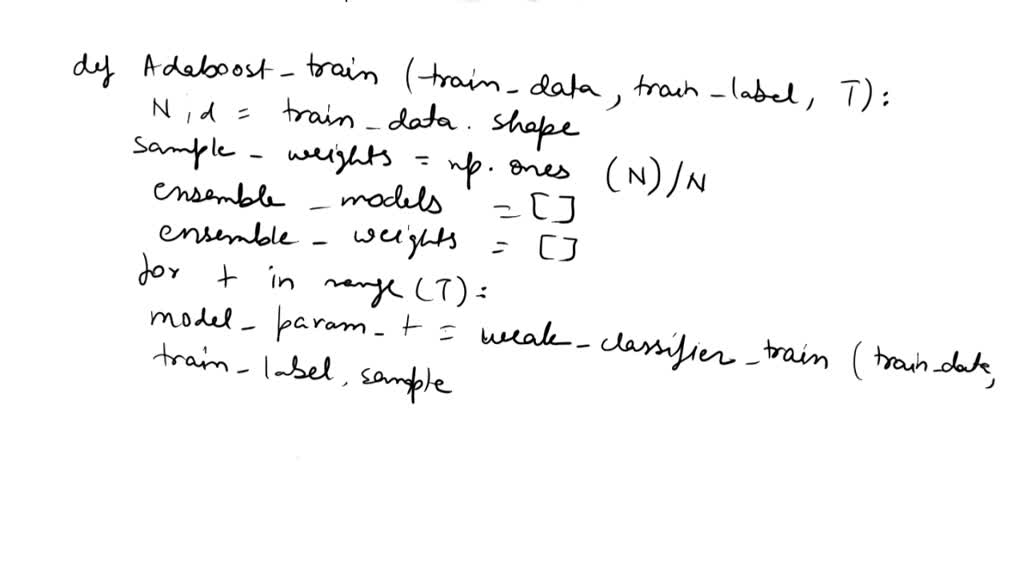 def Adaboost_train (train_data, train_label, T):
N, d = train_data. shape
sample_weights = np. ones (N)/N
ensemble_models = []
ensemble_weights = []
for t in range (T):
model_param_t = weak_classifier_train (train_data,
train_label, sample